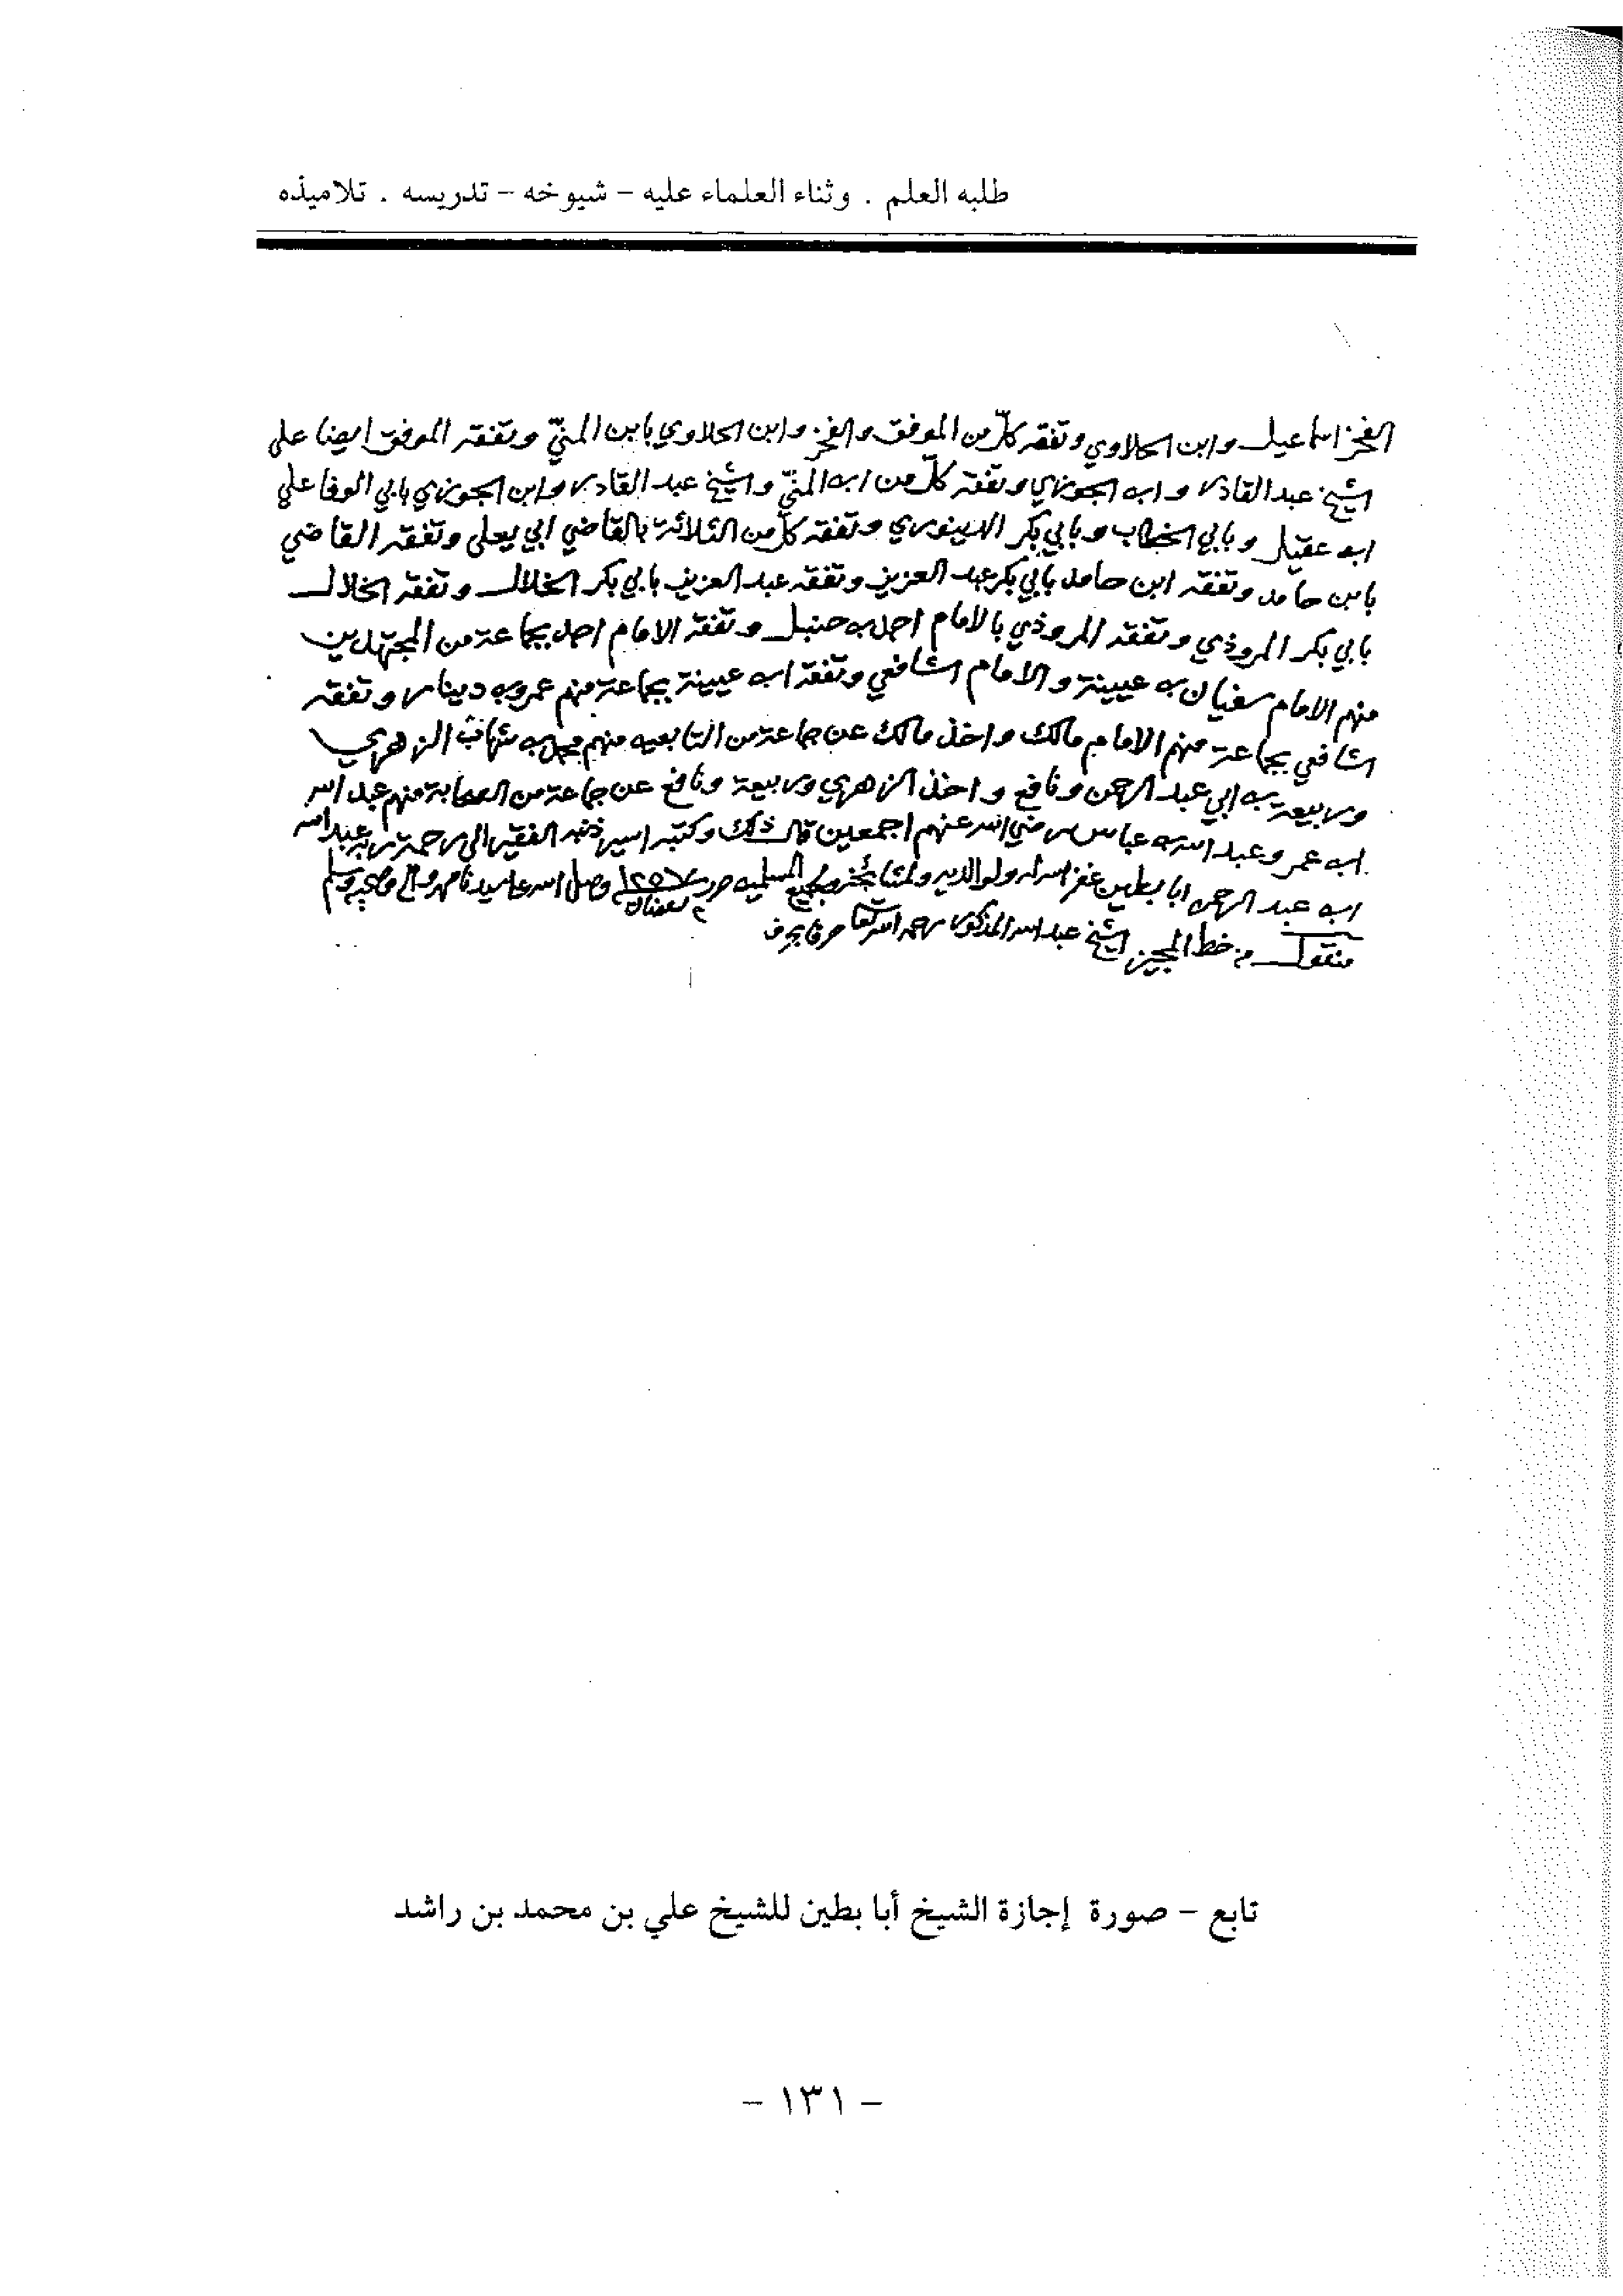 طلبه العلم . وثناء العلماء عليه - شيوخه - تدريسه . تلاميذه
الفخر اسماعيل وابن الحلاوي وتفقه كلّ من الموفق والفخر وابن الحلاوي بابن المنيّ وتفقه الموفق ايضا على
الشيخ عبد القادر وابن الجوزي وتفقه كلّ من ابن المنيّ والشيخ عبد القادر وابن الجوزي بابي الوفا علي
ابن عقيل وبابي الخطاب وبابي بكر الدينوري وتفقه كلّ من الثلاثة بالقاضي ابي يعلى وتفقه القاضي
بابن حامد وتفقه ابن حامد بابي بكر عبد العزيز وتفقه عبد العزيز بابي بكر الخلال وتفقه الخلال
بابي بكر المروذي وتفقه المروذي بالامام احمد بن حنبل وتفقه الامام احمد بجماعة من المجتهدين
منهم الامام سفيان بن عيينة والامام الشافعي وتفقه ابن عيينة بجماعة منهم عمرو بن دينار وتفقه
الشافعي بجماعة منهم الامام مالك واخذ مالك عن جماعة من التابعين منهم محمد بن شهاب الزهري
وربيعة بن ابي عبد الرحمن ونافع واخذ الزهري وربيعة ونافع عن جماعة من الصحابة منهم عبد الله
ابن عمر وعبد الله بن عباس رضي الله عنهم اجمعين قال ذلك وكتبه اسير ذنبه الفقير الى رحمة ربه عبد الله
ابن عبد الرحمن ابا بطين غفر الله له ولوالديه ولمشايخه ولجميع المسلمين حرر ١٢٥٧ وصلى الله على سيدنا محمد وآله وصحبه وسلم
رمضان
منقول من خط المجيز الشيخ عبد الله المذكور رحمه الله تعالى حرفا بحرف
تابع - صورة إجازة الشيخ أبا بطين للشيخ علي بن محمد بن راشد
- ١٣١ -